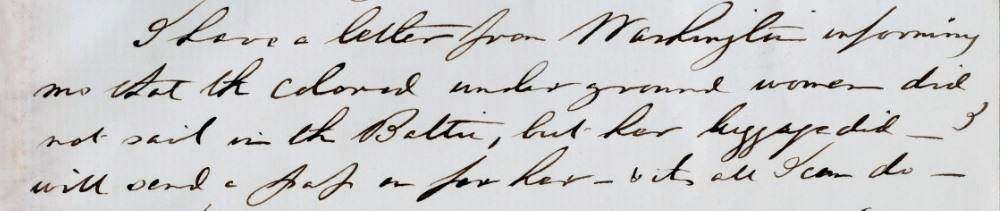 I have a letter from Washington informing
me that the colored underground women did
not sail in the Baltic, but her luggage did —
will send a pass on for her — its all I can do —